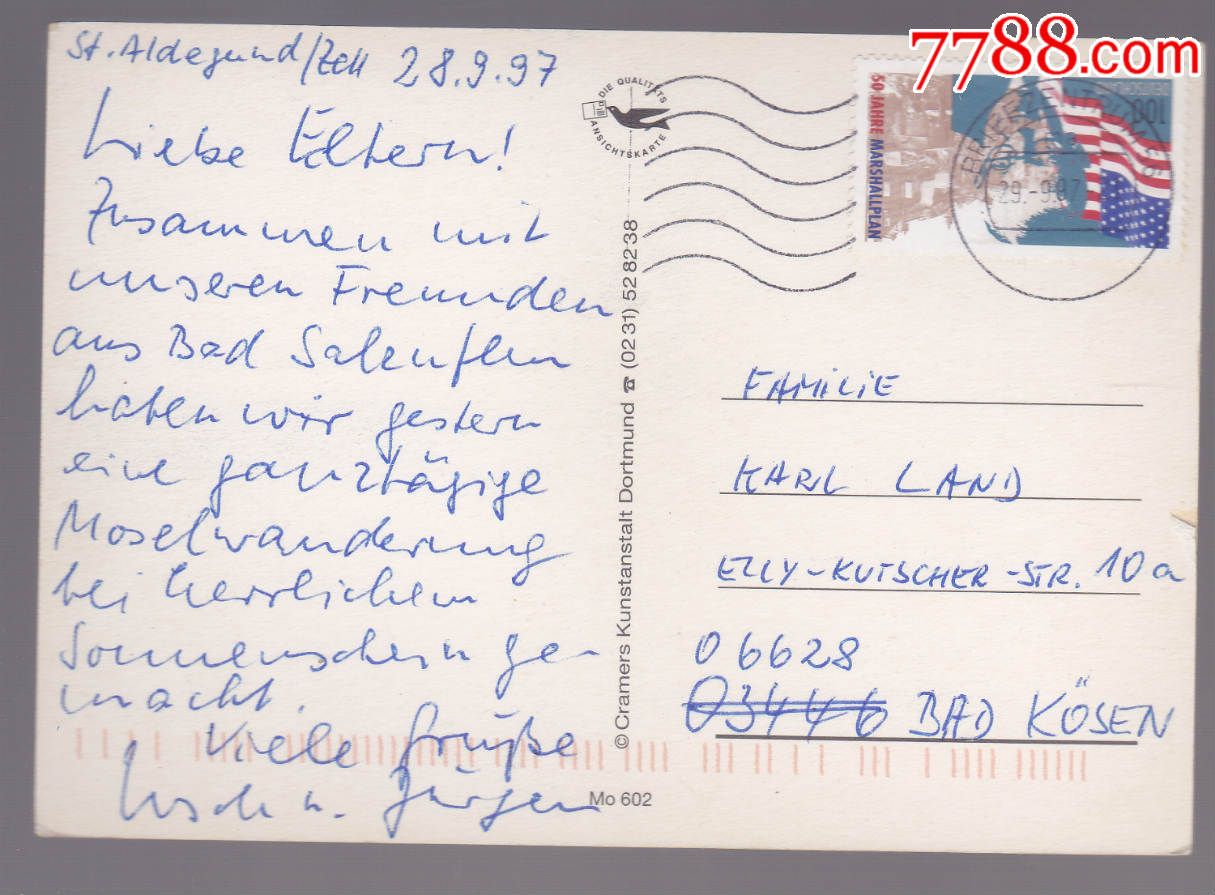 7788.com
St. Aldegund/Zell 28.9.97
Liebe Eltern!
Zusammen mit
unseren Freunden
aus Bad Salzuflen
haben wir gestern
eine ganztägige
Moselwanderung
bei herrlichem
Sonnenschein ge-
macht.
Viele Grüße
u. Jürgen
DIE QUALITÄTS
ANSICHTSKARTE
© Cramers Kunstanstalt Dortmund ☎ (02 31) 52 82 38
Mo 602
50 JAHRE MARSHALLPLAN
100
BRIEFZENTRUM
29.-9.97
FAMILIE
KARL LAND
ELLY-KUTSCHER-STR. 10a
06628
03446 BAD KÖSEN